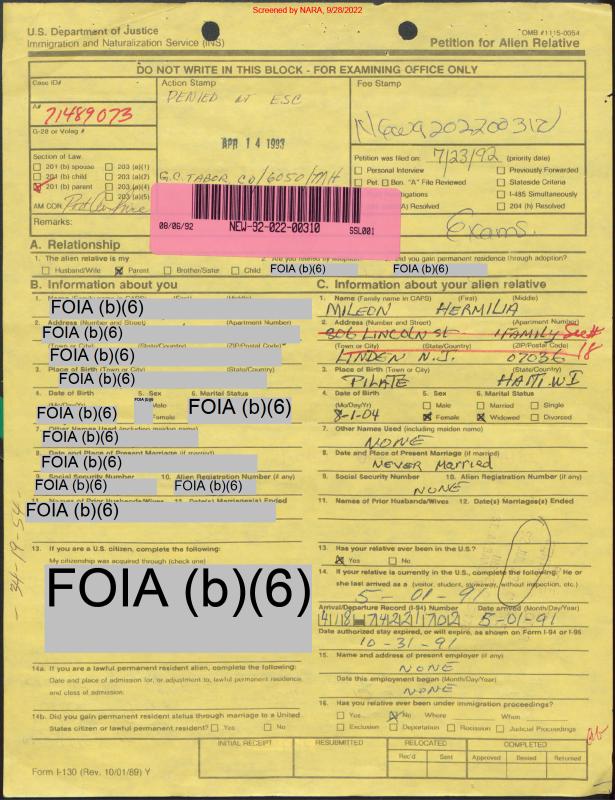 Screened by NARA, 9/28/2022
U.S. Department of Justice
Immigration and Naturalization Service (INS)
OMB #1115-0054
Petition for Alien Relative
DO NOT WRITE IN THIS BLOCK - FOR EXAMINING OFFICE ONLY
Case ID#
Action Stamp
Fee Stamp
DENIED AT ESC
A#
71489073
G-28 or Volag #
APR 14 1993
Petition was filed on: 7/23/92 (priority date)
Section of Law:
201 (b) spouse 203 (a)(1)
201 (b) child 203 (a)(2)
201 (b) parent 203 (a)(4)
203 (a)(5)
AM CON:
Remarks:
G.C. TABOR CO/6050/MH
Personal Interview Previously Forwarded
Pet. Ben. "A" File Reviewed Stateside Criteria
I-485 Simultaneously
Resolved 204 (h) Resolved
08/06/92 NEW-92-022-00310 SSL001
Exams.
A. Relationship
1. The alien relative is my
Husband/Wife Parent Brother/Sister Child
FOIA (b)(6)
you gain permanent residence through adoption?
FOIA (b)(6)
B. Information about you
1. Name (Family name in CAPS) (First) (Middle)
FOIA (b)(6)
2. Address (Number and Street) (Apartment Number)
FOIA (b)(6)
(Town or City) (State/Country) (ZIP/Postal Code)
FOIA (b)(6)
3. Place of Birth (Town or City) (State/Country)
FOIA (b)(6)
4. Date of Birth 5. Sex 6. Marital Status
(Mo/Day/Yr)
FOIA (b)(6) FOIA (b)(6) FOIA (b)(6)
7. Other Names Used (including maiden name)
FOIA (b)(6)
8. Date and Place of Present Marriage (if married)
FOIA (b)(6)
9. Social Security Number 10. Alien Registration Number (if any)
FOIA (b)(6) FOIA (b)(6)
11. Names of Prior Husbands/Wives 12. Date(s) Marriage(s) Ended
FOIA (b)(6)
13. If you are a U.S. citizen, complete the following:
My citizenship was acquired through (check one)
FOIA (b)(6)
14a. If you are a lawful permanent resident alien, complete the following:
Date and place of admission for, or adjustment to, lawful permanent residence,
and class of admission:
14b. Did you gain permanent resident status through marriage to a United
States citizen or lawful permanent resident? Yes No
- 34-19-54 -
C. Information about your alien relative
1. Name (Family name in CAPS) (First) (Middle)
MILEON HERMILIA
2. Address (Number and Street) (Apartment Number)
LINCOLN ST 1 FAMILY See #
18
(Town or City) (State/Country) (ZIP/Postal Code)
LINDEN N.J. 07036
3. Place of Birth (Town or City) (State/Country)
PILATE HAITI W.I
4. Date of Birth 5. Sex 6. Marital Status
(Mo/Day/Yr) Male Married Single
-1-04 Female Widowed Divorced
7. Other Names Used (including maiden name)
NONE
8. Date and Place of Present Marriage (if married)
NEVER Married
9. Social Security Number 10. Alien Registration Number (if any)
NONE
11. Names of Prior Husbands/Wives 12. Date(s) Marriage(s) Ended
13. Has your relative ever been in the U.S.?
Yes No
14. If your relative is currently in the U.S., complete the following: He or
she last arrived as a (visitor, student, stowaway, without inspection, etc.)
5-01-91
Arrival/Departure Record (I-94) Number Date arrived (Month/Day/Year)
5-01-91
Date authorized stay expired, or will expire, as shown on Form I-94 or I-95
10-31-91
15. Name and address of present employer (if any)
NONE
Date this employment began (Month/Day/Year)
NONE
16. Has your relative ever been under immigration proceedings?
Yes No Where When
Exclusion Deportation Recission Judicial Proceedings
INITIAL RECEIPT RESUBMITTED RELOCATED COMPLETED
Rec'd Sent Approved Denied Returned
Form I-130 (Rev. 10/01/89) Y